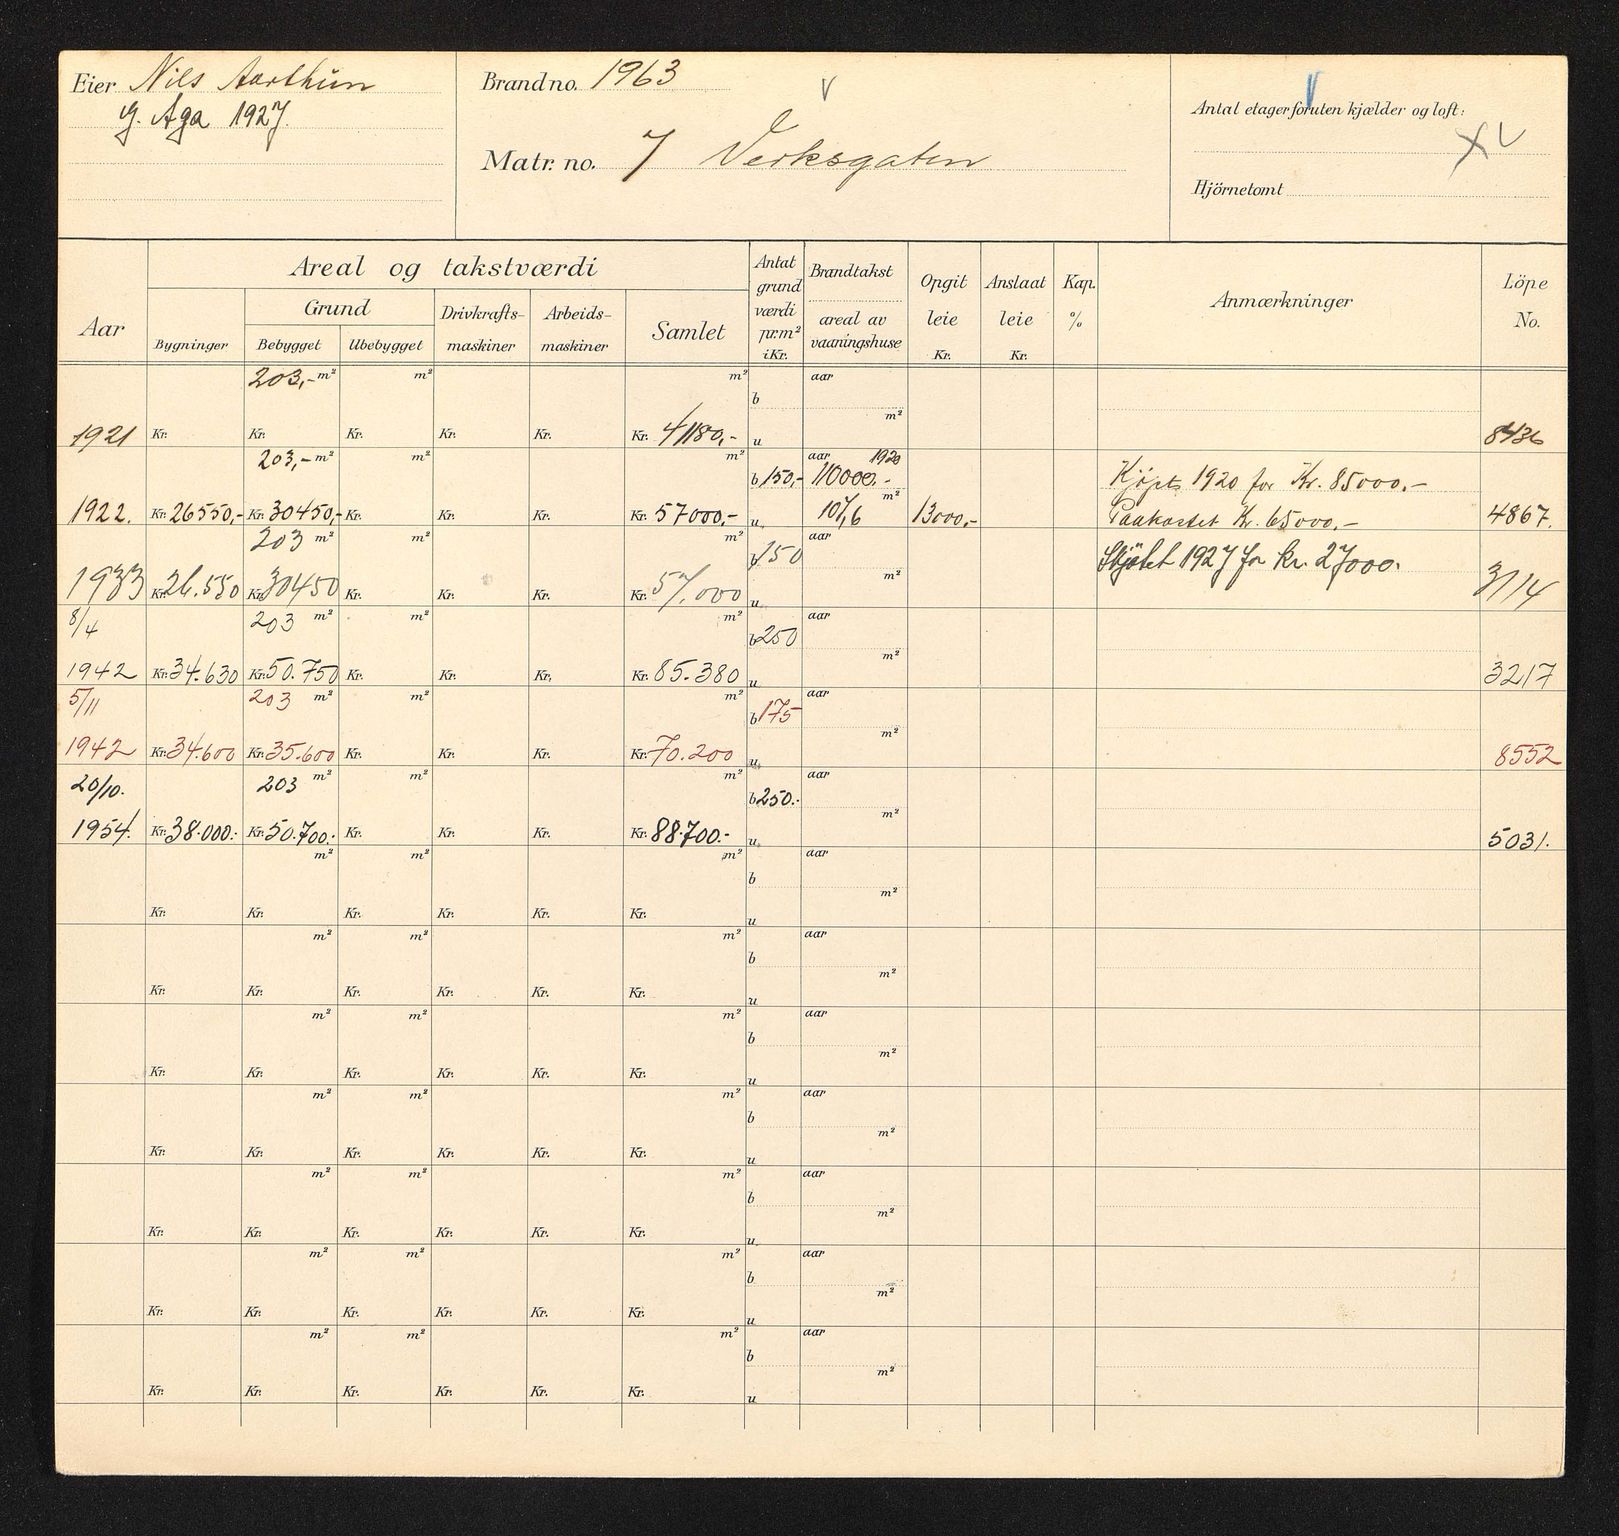 Eier Nils Aarthun
G. Aga 1927.
Brand no. 1963
Matr. no. 7 Verksgaten
Antal etager foruten kjælder og loft:
Hjörnetomt
Aar
Areal og takstværdi
Bygninger
Grund
Bebygget
Ubebygget
Drivkrafts-
maskiner
Arbeids-
maskiner
Samlet
Antat
grund
værdi
pr.m²
i Kr.
Brandtakst
areal av
vaaningshuse
Opgit
leie
Kr.
Anslaat
leie
Kr.
Kap.
%
Anmærkninger
Löpe
No.
203,- m² m² m² aar
b
m²
1921 Kr. Kr. Kr. Kr. Kr. Kr. 41180,- u 8436
203,- m² m² m² aar 1920
b 150,- 110000.- Kjøpt 1920 for Kr. 85000.-
m²
1922. Kr. 26550,- Kr. 30450,- Kr. Kr. Kr. Kr. 57000,- u 107,6 13000,- Paakostet Kr. 65000.- 4867.
203 m² m² m² aar
b 150 Skjøtet 1927 for kr. 27000.
m²
1933 Kr. 26.550 Kr. 30450 Kr. Kr. Kr. Kr. 57.000 u 3114
8/4 203 m² m² m² aar
b 250
m²
1942 Kr. 34.630 Kr. 50.750 Kr. Kr. Kr. Kr. 85.380 u 3217
5/11 203 m² m² m² aar
b 175
m²
1942 Kr. 34.600 Kr. 35.600 Kr. Kr. Kr. Kr. 70.200 u 8552
20/10. 203 m² m² m² aar
b 250.-
m²
1954. Kr. 38.000.- Kr. 50.700.- Kr. Kr. Kr. Kr. 88.700.- u 5031.
m² m² m² aar
b
m²
Kr. Kr. Kr. Kr. Kr. Kr. u
m² m² m² aar
b
m²
Kr. Kr. Kr. Kr. Kr. Kr. u
m² m² m² aar
b
m²
Kr. Kr. Kr. Kr. Kr. Kr. u
m² m² m² aar
b
m²
Kr. Kr. Kr. Kr. Kr. Kr. u
m² m² m² aar
b
m²
Kr. Kr. Kr. Kr. Kr. Kr. u
m² m² m² aar
b
m²
Kr. Kr. Kr. Kr. Kr. Kr. u
m² m² m² aar
b
m²
Kr. Kr. Kr. Kr. Kr. Kr. u